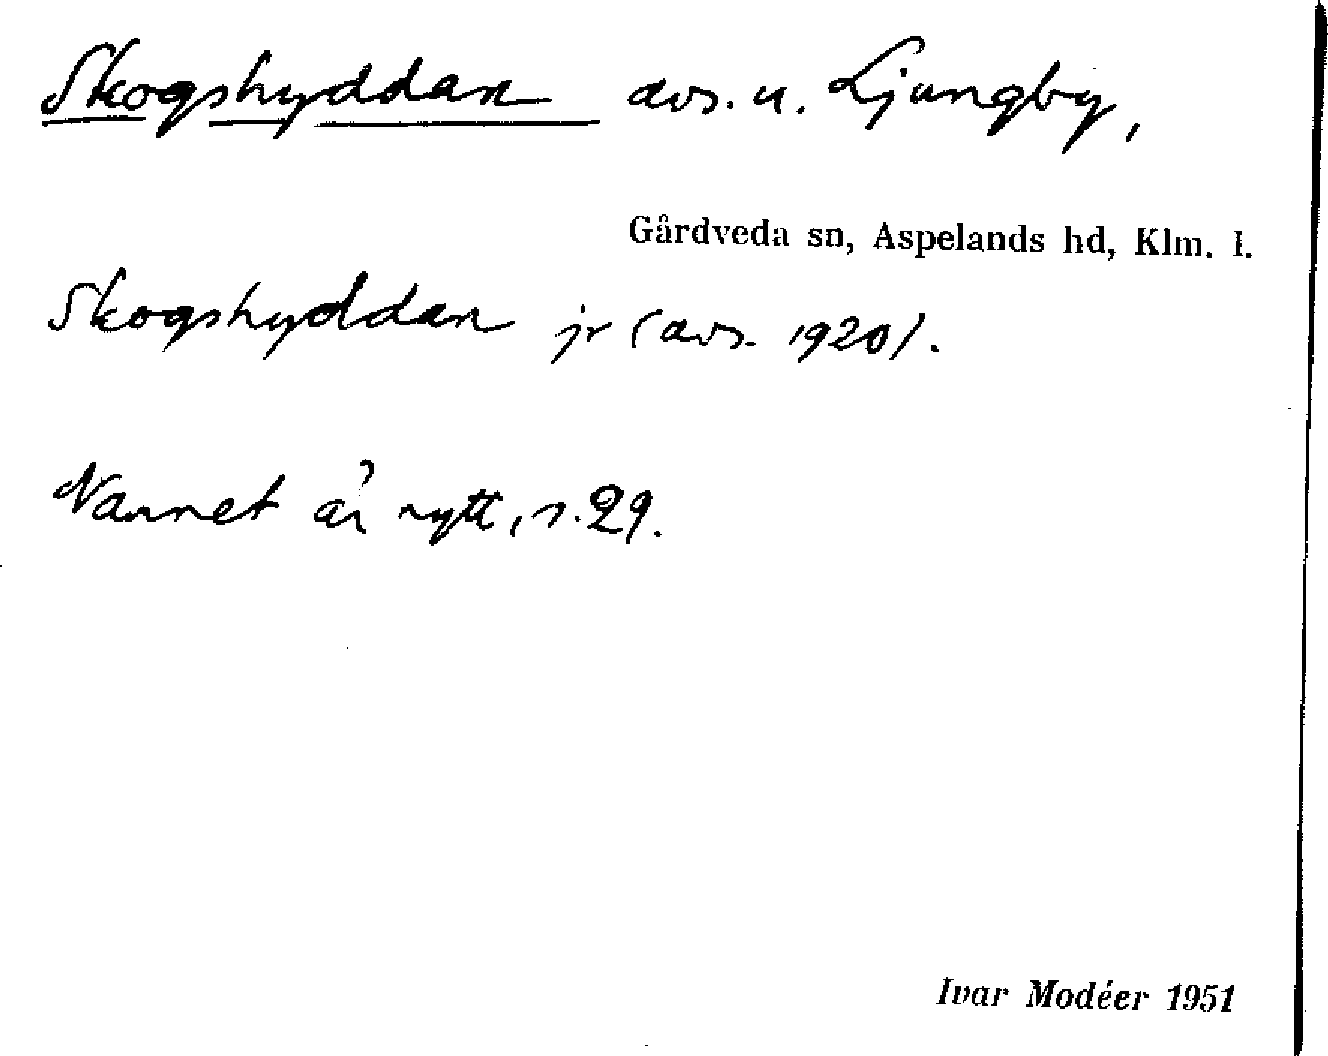 Skogshyddan avs. u. Ljungby,
Gårdveda sn, Aspelands hd, Klm. l.
Skogshyddan jr (avs. 1920).
Namnet är nytt, s. 29.
Ivar Modéer 1951